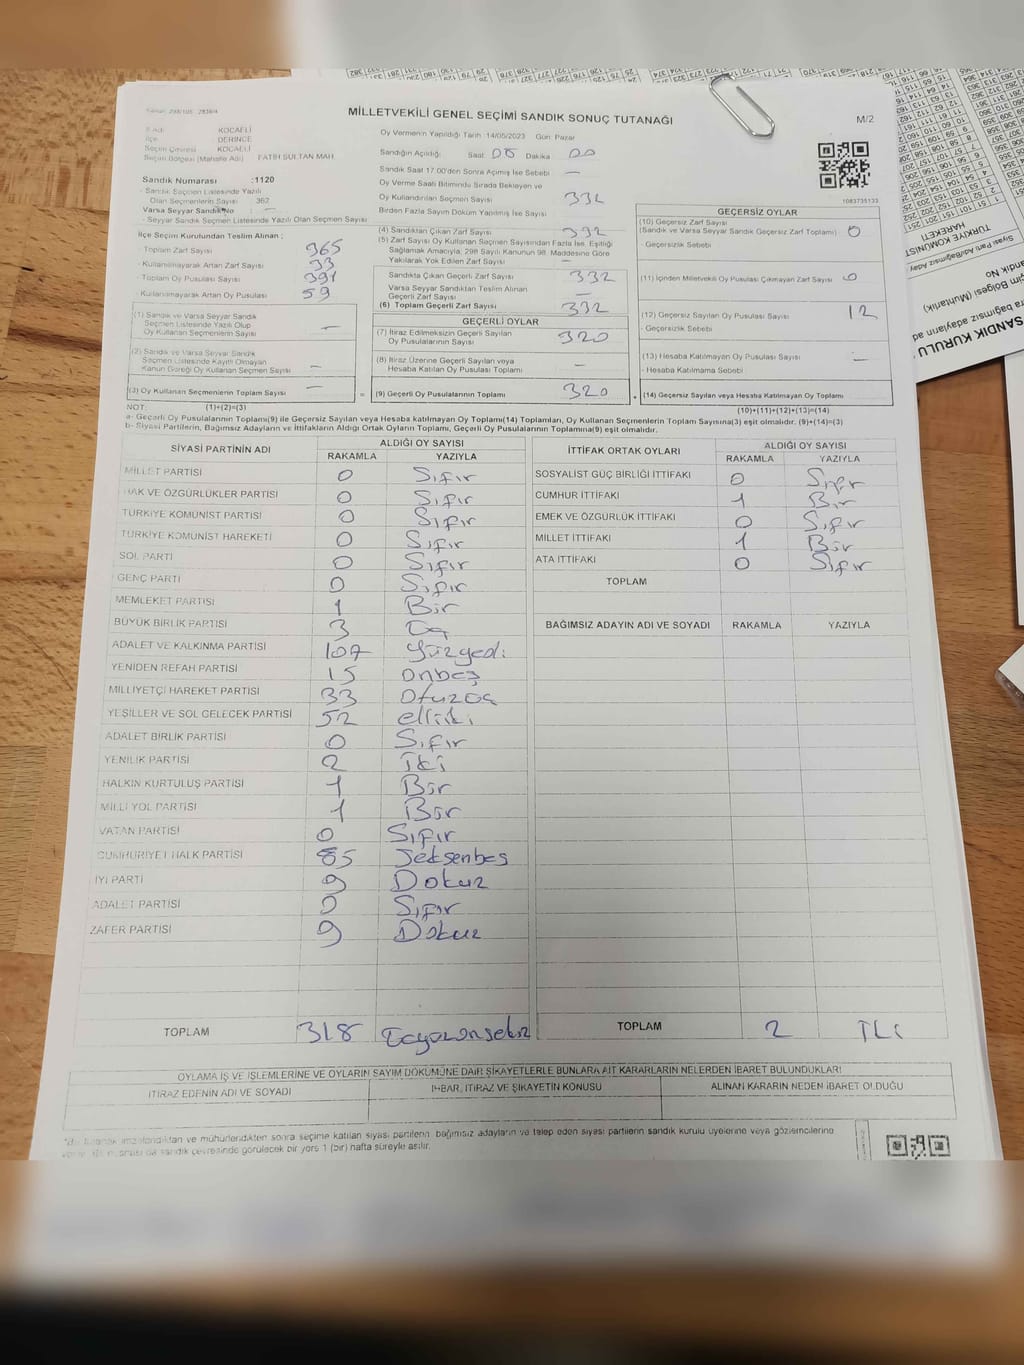 MİLLETVEKİLİ GENEL SEÇİMİ SANDIK SONUÇ TUTANAĞI
M/2
İl Adı KOCAELİ
İlçe DERİNCE
Seçim Çevresi KOCAELİ
Seçim Bölgesi (Mahalle Adı) FATİH SULTAN MAH.
Sandık Numarası :1120
- Sandık Seçmen Listesinde Yazılı
Olan Seçmenlerin Sayısı 362
Varsa Seyyar Sandık No —
- Seyyar Sandık Seçmen Listesinde Yazılı Olan Seçmen Sayısı
İlçe Seçim Kurulundan Teslim Alınan ;
- Toplam Zarf Sayısı 365
- Kullanılmayarak Artan Zarf Sayısı 33
- Toplam Oy Pusulası Sayısı 391
- Kullanılmayarak Artan Oy Pusulası 59
(1) Sandık ve Varsa Seyyar Sandık
Seçmen Listesinde Yazılı Olup
Oy Kullanan Seçmenlerin Sayısı —
(2) Sandık ve Varsa Seyyar Sandık
Seçmen Listesinde Kayıtlı Olmayan
Kanun Gereği Oy Kullanan Seçmen Sayısı —
(3) Oy Kullanan Seçmenlerin Toplam Sayısı —
Oy Vermenin Yapıldığı Tarih :14/05/2023 Gün: Pazar
Sandığın Açıldığı: Saat: 08 Dakika 00
Sandık Saat 17.00'den Sonra Açılmış İse Sebebi —
Oy Verme Saati Bitiminde Sırada Bekleyen ve
Oy Kullandırılan Seçmen Sayısı 332
Birden Fazla Sayım Döküm Yapılmış İse Sayısı
(4) Sandıktan Çıkan Zarf Sayısı 332
(5) Zarf Sayısı Oy Kullanan Seçmen Sayısından Fazla İse, Eşitliği
Sağlamak Amacıyla, 298 Sayılı Kanunun 98. Maddesine Göre
Yakılarak Yok Edilen Zarf Sayısı —
Sandıkta Çıkan Geçerli Zarf Sayısı 332
Varsa Seyyar Sandıktan Teslim Alınan
Geçerli Zarf Sayısı —
(6) Toplam Geçerli Zarf Sayısı 332
GEÇERLİ OYLAR
(7) İtiraz Edilmeksizin Geçerli Sayılan
Oy Pusulalarının Sayısı 320
(8) İtiraz Üzerine Geçerli Sayılan veya
Hesaba Katılan Oy Pusulası Toplamı —
= (9) Geçerli Oy Pusulalarının Toplamı 320
1083735133
GEÇERSİZ OYLAR
(10) Geçersiz Zarf Sayısı
(Sandık ve Varsa Seyyar Sandık Geçersiz Zarf Toplamı) 0
- Geçersizlik Sebebi
(11) İçinden Milletvekili Oy Pusulası Çıkmayan Zarf Sayısı 0
(12) Geçersiz Sayılan Oy Pusulası Sayısı 12
Geçersizlik Sebebi
(13) Hesaba Katılmayan Oy Pusulası Sayısı —
- Hesaba Katılmama Sebebi
+ (14) Geçersiz Sayılan veya Hesaba Katılmayan Oy Toplamı
NOT: (1)+(2)=(3) (10)+(11)+(12)+(13)=(14)
a- Geçerli Oy Pusulalarının Toplamı(9) ile Geçersiz Sayılan veya Hesaba katılmayan Oy Toplamı(14) Toplamları, Oy Kullanan Seçmenlerin Toplam Sayısına(3) eşit olmalıdır. (9)+(14)=(3)
b- Siyasi Partilerin, Bağımsız Adayların ve İttifakların Aldığı Ortak Oyların Toplamı, Geçerli Oy Pusulalarının Toplamına(9) eşit olmalıdır.
SİYASİ PARTİNİN ADI ALDIĞI OY SAYISI
RAKAMLA YAZIYLA
MİLLET PARTİSİ 0 Sıfır
HAK VE ÖZGÜRLÜKLER PARTİSİ 0 Sıfır
TÜRKİYE KOMÜNİST PARTİSİ 0 Sıfır
TÜRKİYE KOMÜNİST HAREKETİ 0 Sıfır
SOL PARTİ 0 Sıfır
GENÇ PARTİ 0 Sıfır
MEMLEKET PARTİSİ 1 Bir
BÜYÜK BİRLİK PARTİSİ 3 Üç
ADALET VE KALKINMA PARTİSİ 107 Yüzyedi
YENİDEN REFAH PARTİSİ 15 onbeş
MİLLİYETÇİ HAREKET PARTİSİ 33 Otuzüç
YEŞİLLER VE SOL GELECEK PARTİSİ 52 elliiki
ADALET BİRLİK PARTİSİ 0 Sıfır
YENİLİK PARTİSİ 2 İki
HALKIN KURTULUŞ PARTİSİ 1 Bir
MİLLİ YOL PARTİSİ 1 Bir
VATAN PARTİSİ 0 Sıfır
CUMHURİYET HALK PARTİSİ 85 Seksenbeş
İYİ PARTİ 9 Dokuz
ADALET PARTİSİ 0 Sıfır
ZAFER PARTİSİ 9 Dokuz
TOPLAM 318 Üçyüzonsekiz
İTTİFAK ORTAK OYLARI ALDIĞI OY SAYISI
RAKAMLA YAZIYLA
SOSYALİST GÜÇ BİRLİĞİ İTTİFAKI 0 Sıfır
CUMHUR İTTİFAKI 1 Bir
EMEK VE ÖZGÜRLÜK İTTİFAKI 0 Sıfır
MİLLET İTTİFAKI 1 Bir
ATA İTTİFAKI 0 Sıfır
TOPLAM
BAĞIMSIZ ADAYIN ADI VE SOYADI RAKAMLA YAZIYLA
TOPLAM 2 İki
OYLAMA İŞ VE İŞLEMLERİNE VE OYLARIN SAYIM DÖKÜMÜNE DAİR ŞİKAYETLERLE BUNLARA AİT KARARLARIN NELERDEN İBARET BULUNDUKLARI
İTİRAZ EDENİN ADI VE SOYADI İHBAR, İTİRAZ VE ŞİKAYETİN KONUSU ALINAN KARARIN NEDEN İBARET OLDUĞU
*Bu tutanak imzalandıktan ve mühürlendikten sonra seçime katılan siyasi partilerin, bağımsız adayların ve talep eden siyasi partilerin sandık kurulu üyelerine veya gözlemcilerine
bir yere 1 (bir) hafta süreyle asılır.